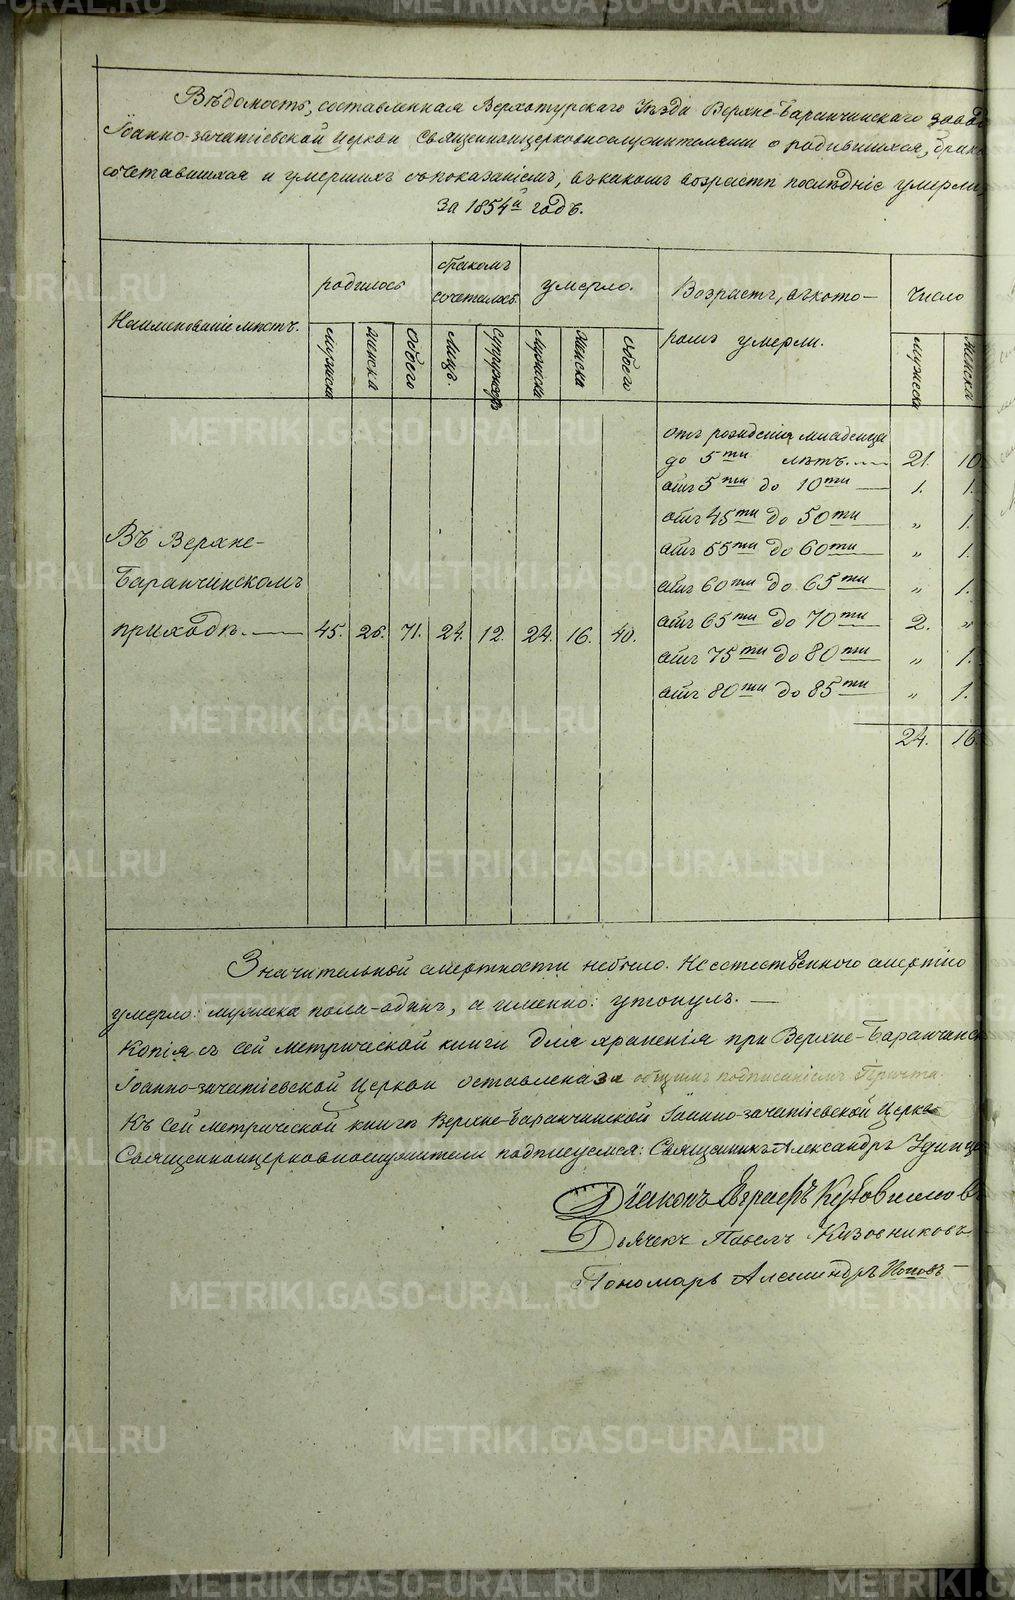 Вѣдомость, составленная Верхотурскаго Уѣзда Верхне-Баранчинскаго завод
Іоанно-зачатіевской Церкви Священноицерковнослужителями о родившихся, брако
сочетавшихся и умершихъ съпоказаніемъ, въкакомъ возрастѣ послѣдніе умерли,
за 1854й годъ.
Наименованіе мѣстъ.
родилось
бракомъ
сочеталось
умерло.
Возрастъ, въкото-
ромъ умерли.
Число
мужеска
женска
обоего
Лицъ.
Супружествъ
мужеска
женска
обоего
мужеска
женска
Въ Верхне-
Баранчинскомъ
приходѣ. 45. 26. 71. 24. 12. 24. 16. 40.
отъ рожденія младенцы
до 5ти лѣтъ. 21. 10
отъ 5ти до 10ти 1. 1.
отъ 45ти до 50ти „ 1.
отъ 55ти до 60ти „ 1.
отъ 60ти до 65ти „ 1.
отъ 65ти до 70ти 2. „
отъ 75ти до 80ти „ 1.
отъ 80ти до 85ти „ 1.
24. 16
Значительной смертности небыло. Неестественною смертію
умерло: мужеска пола-одинъ, а именно: утонулъ.
Копія съ сей метрической книги для храненія при Верхне-Баранчинск
Іоанно-зачатіевской Церкви оставлена за общимъ подписаніемъ Причта.
Къ сей метрической книгѣ Верхне-Баранчинской Іоанно-зачатіевской Церкви
Священноицерковнослужители подписуемся: Священникъ Александръ Удинце
Діаконъ Евграфъ
Дьячекъ Павелъ Кизовниковъ
Пономарь Александръ Поповъ
METRIKI.GASO-URAL.RU